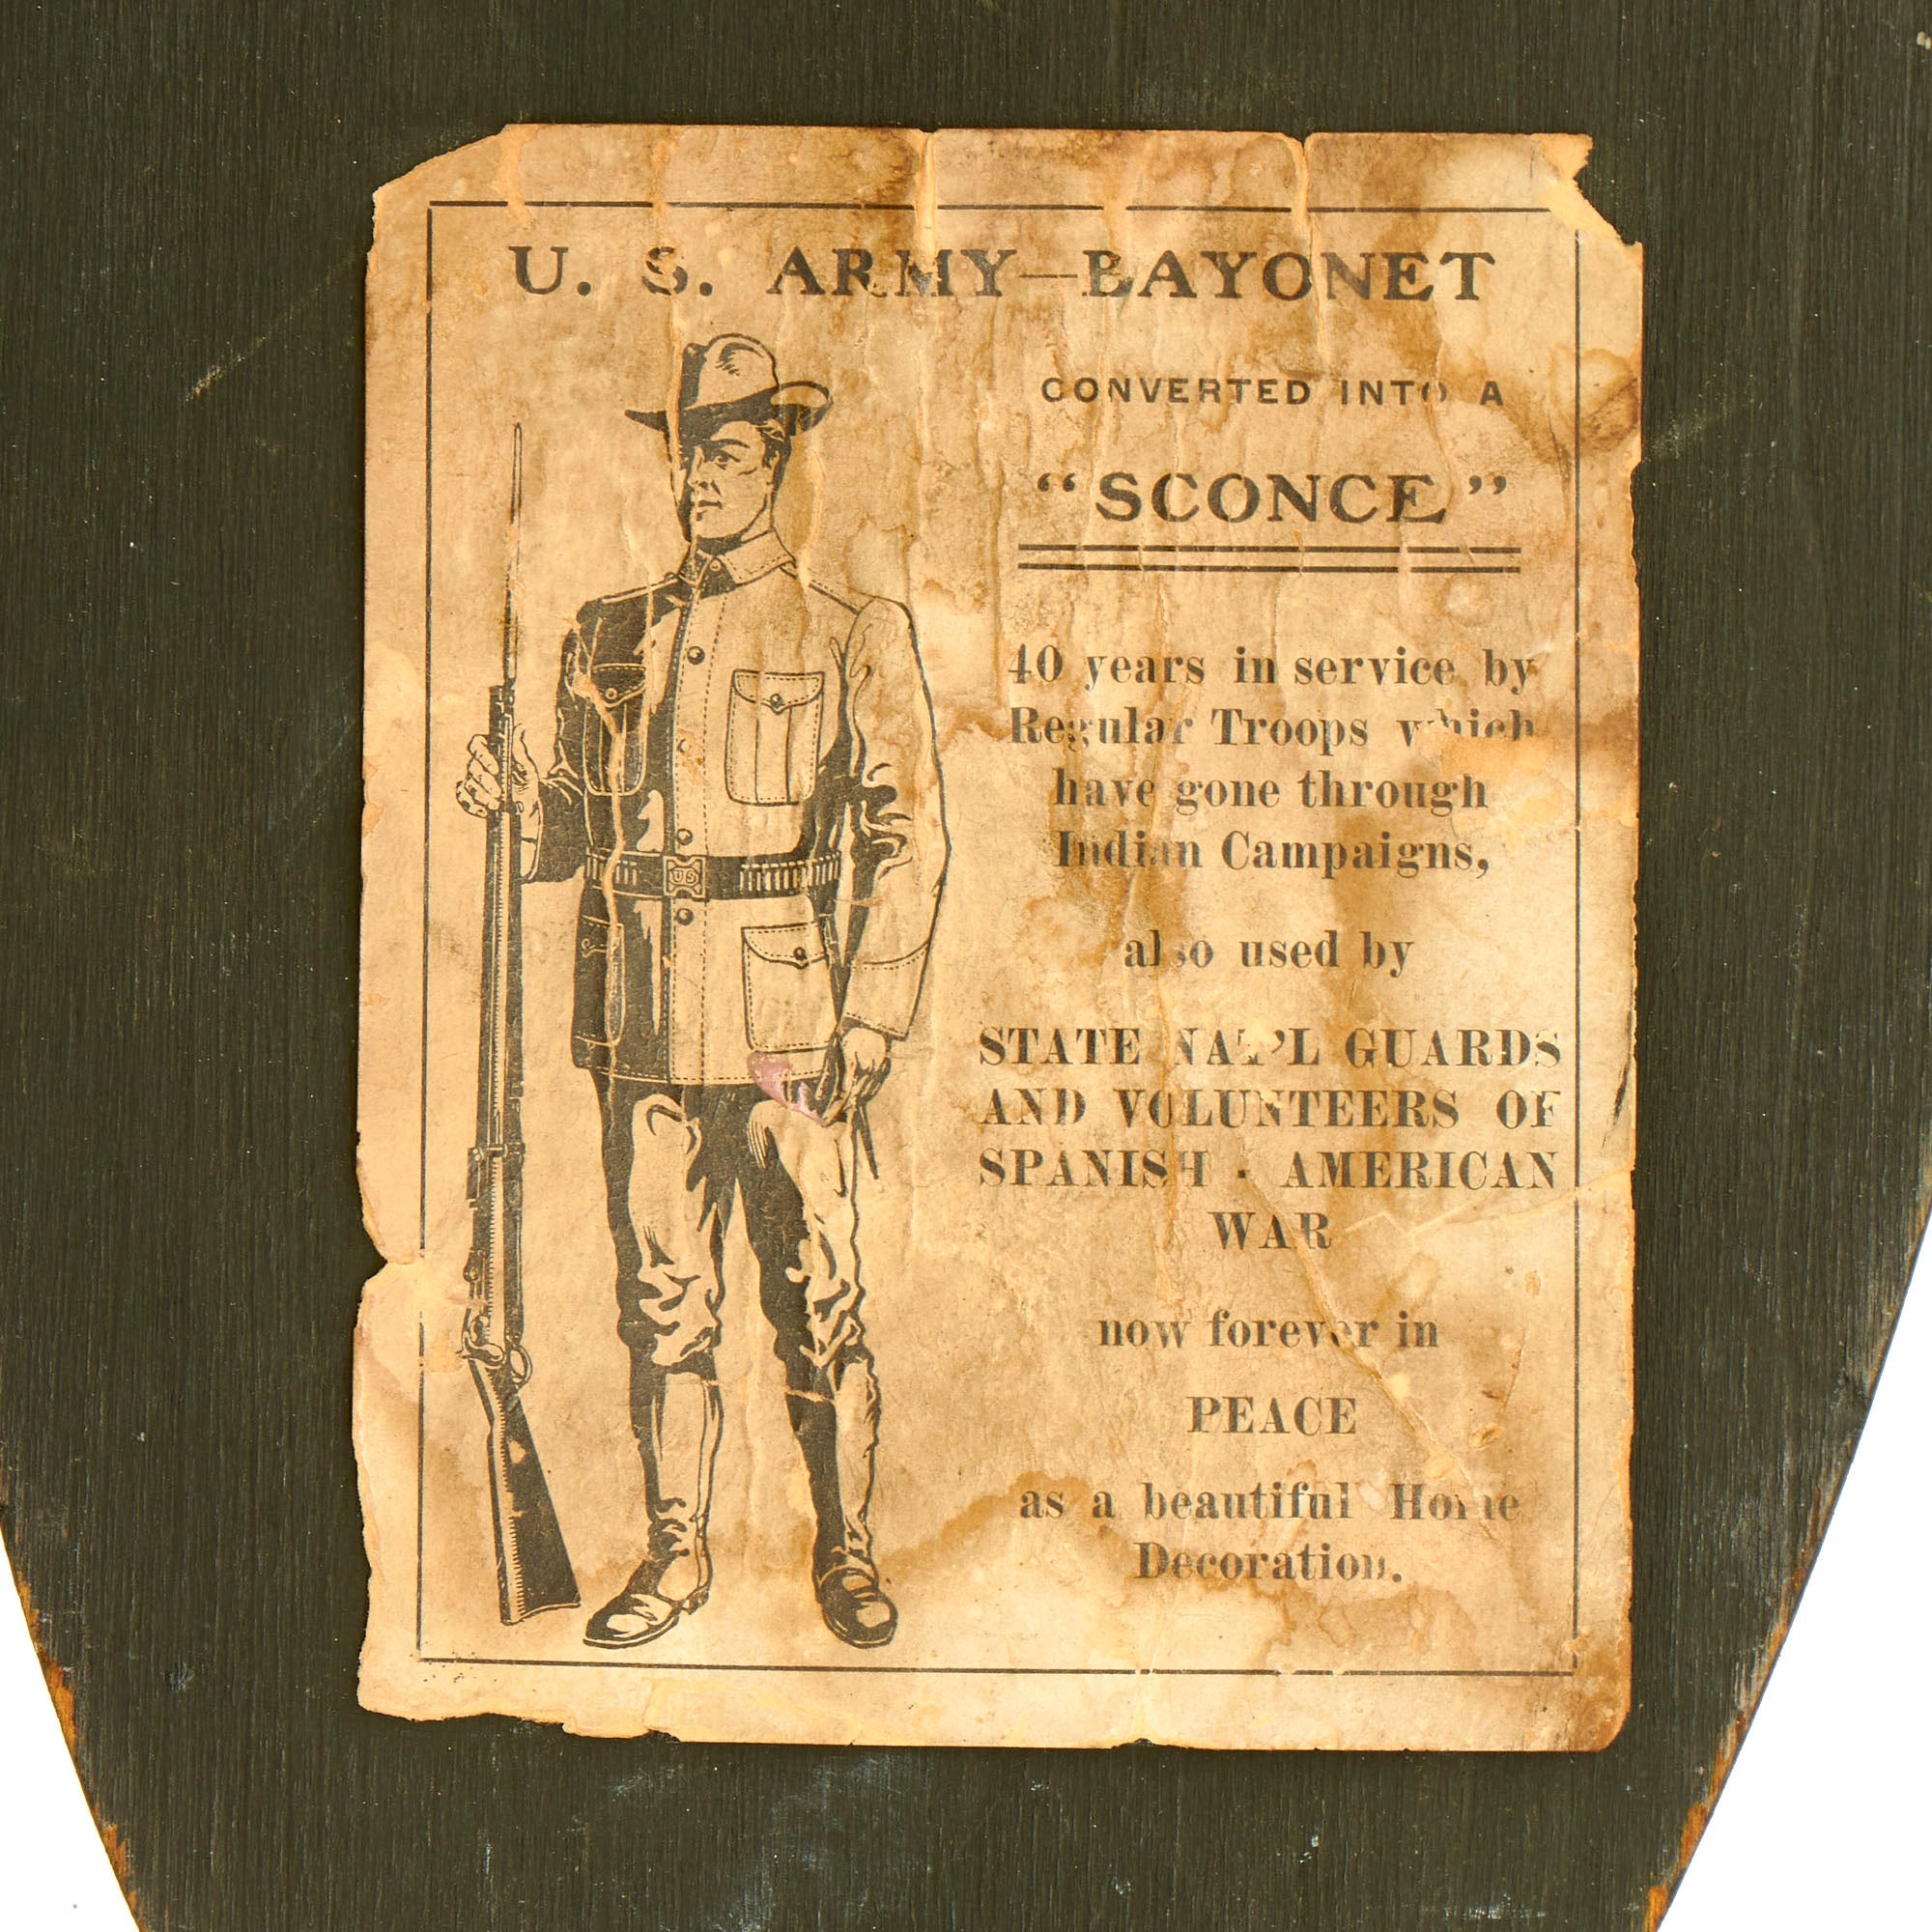 U. S. ARMY—BAYONET
CONVERTED INTO A
“SCONCE”
40 years in service by
Regular Troops which
have gone through
Indian Campaigns,
also used by
STATE NAT’L GUARDS
AND VOLUNTEERS OF
SPANISH - AMERICAN
WAR
now forever in
PEACE
as a beautiful Home
Decoration.
US